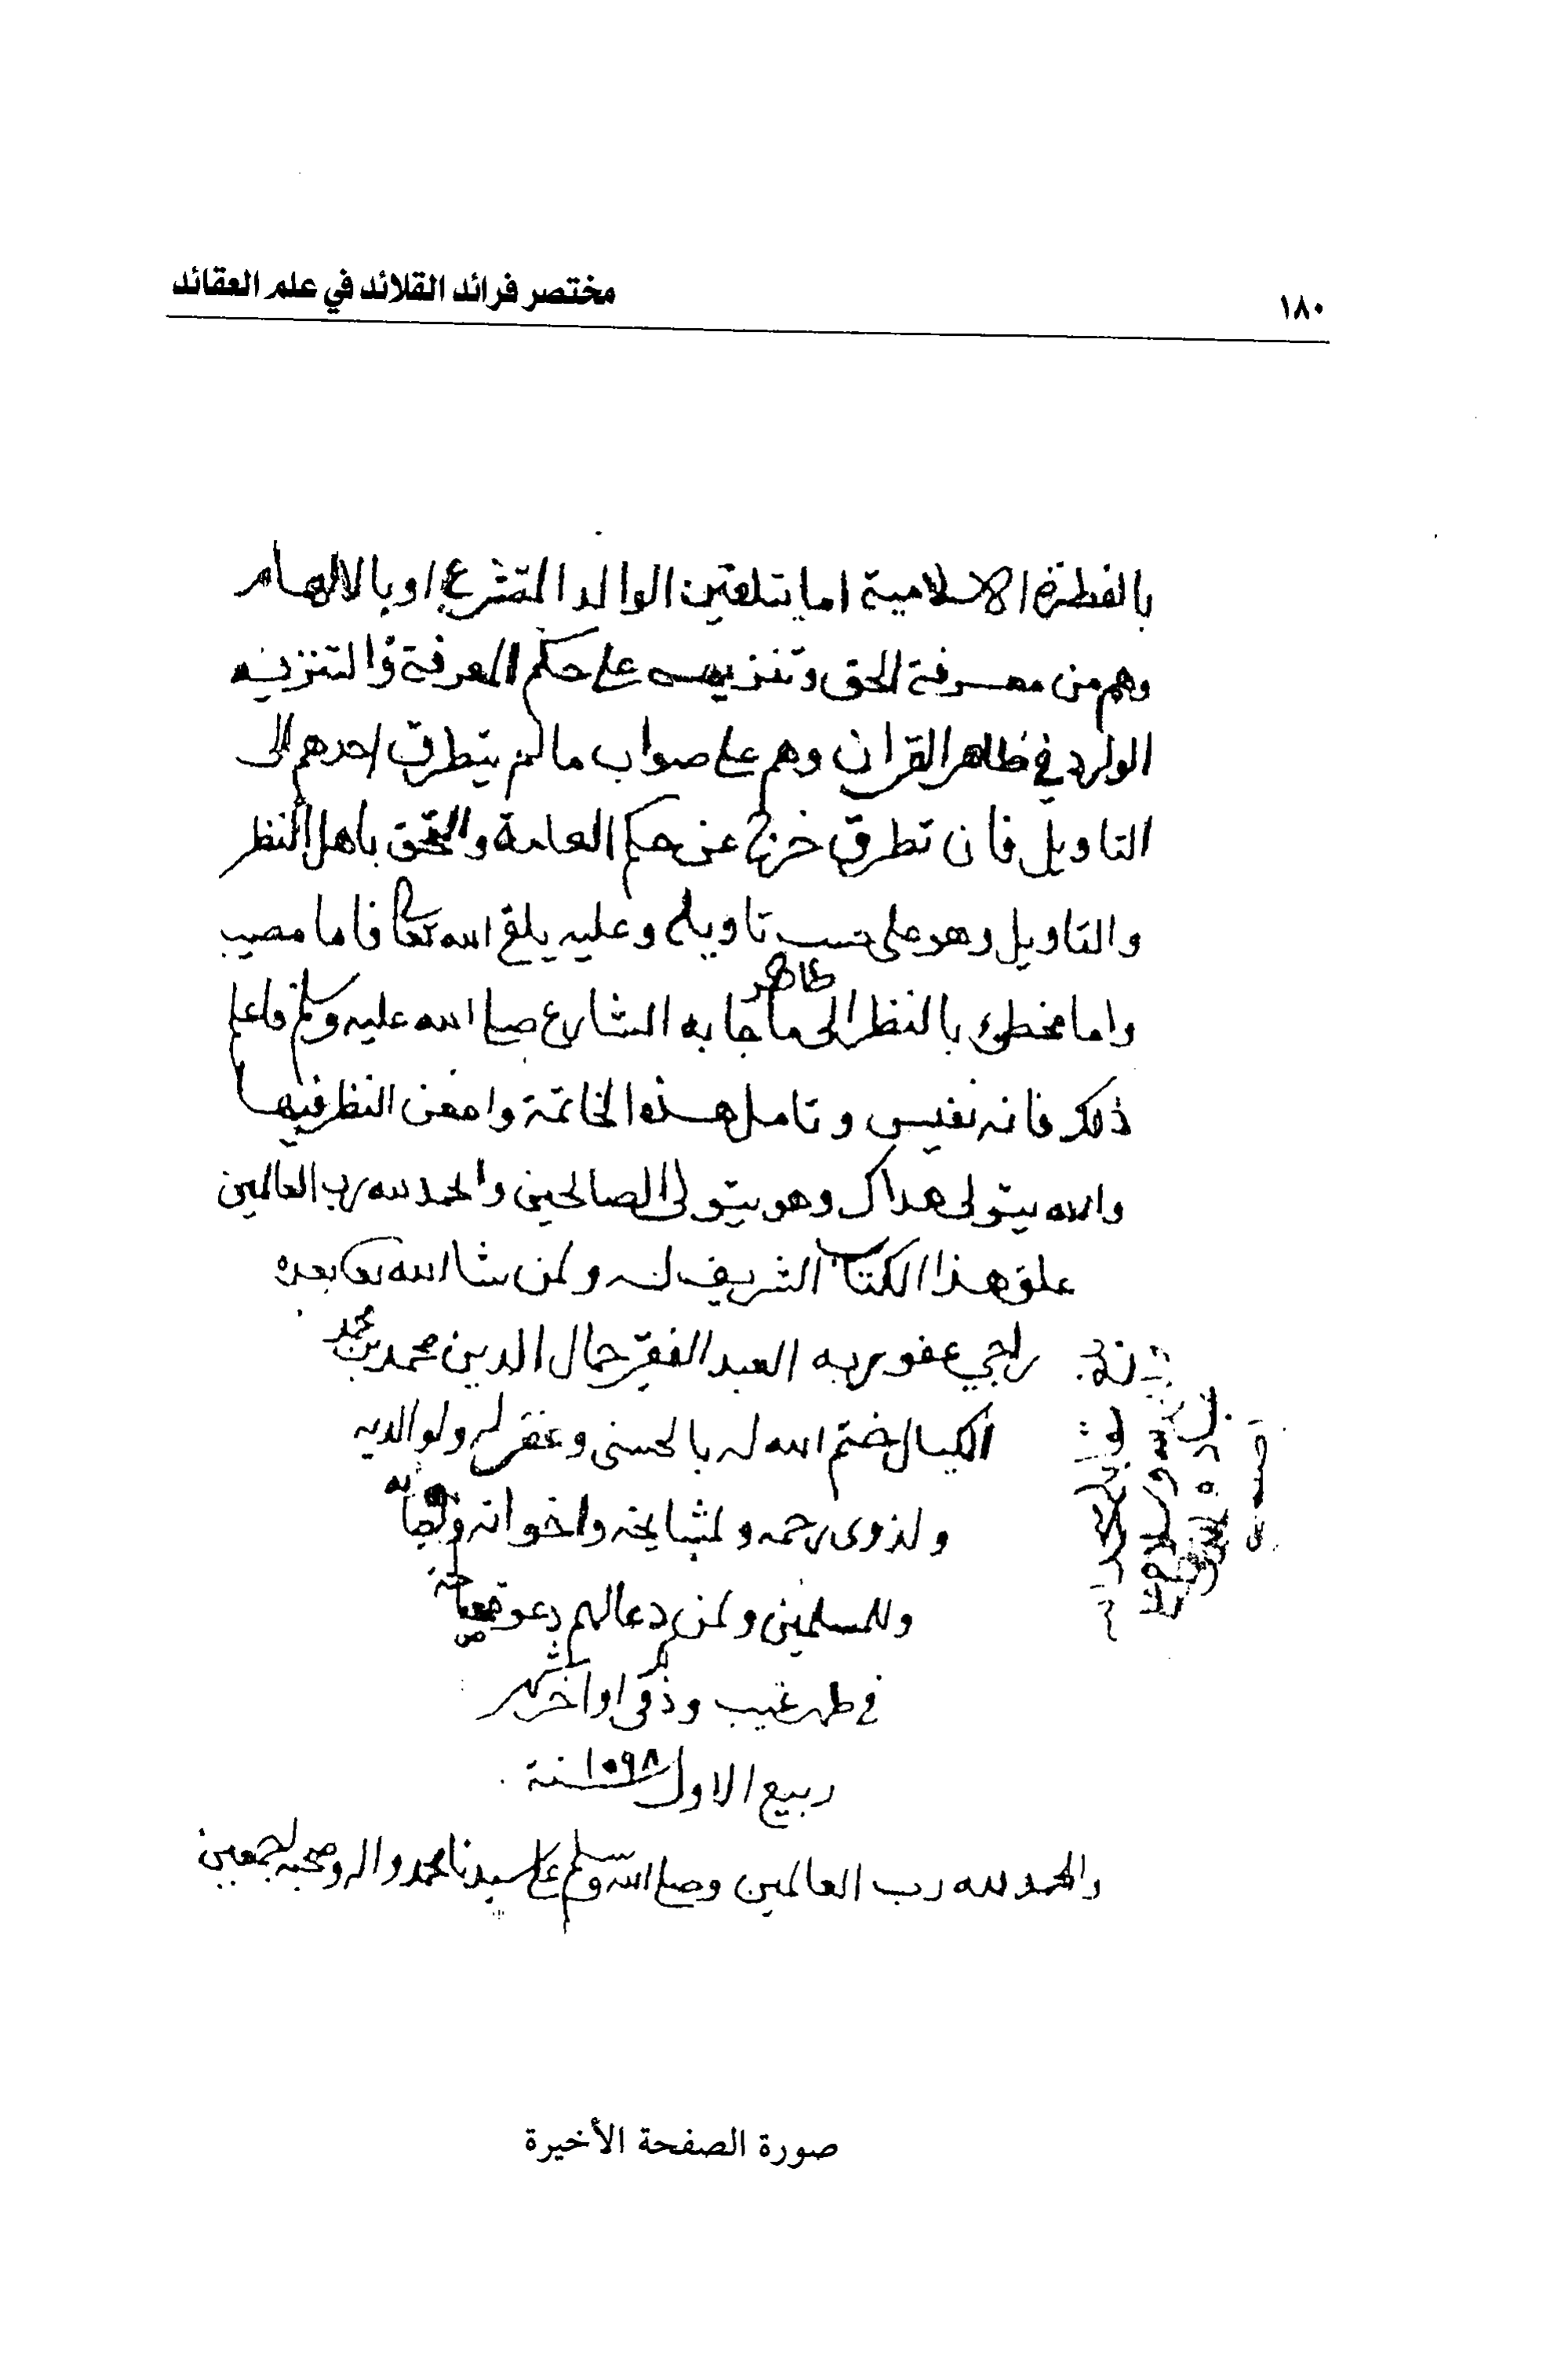 ١٨٠
مختصر فرائد القلائد في علم العقائد
بالفطرة الاسلامية اما بتلقين الوالد المتشرع او بالالهام
وهم من معرفة الحق وتنزيهه على حكم المعرفة والتنزيه
الوارد في ظاهر القران وهم على صواب ما لم يتطرق احدهم الى
التاويل فان تطرق خرج عن حكم العامة والتحق باهل النظر
والتاويل وهو على حسب تاويله وعليه يلقى الله تعالى فاما مصيب
واما مخطىء بالنظر الى ظاهر ما جا به الشارع صلى الله عليه وسلم فاعلم
ذلك فانه نفيس وتامل هذه الخاتمة وامعن النظر فيها
والله يتولى هداك وهو يتولى الصالحين والحمد لله رب العالمين
علق هذا الكتاب الشريف لنفسه ولمن شا الله تعالى بعده
راجي عفو ربه العبد الفقير جمال الدين محمد بن محمد
الكيال ختم الله له بالحسنى وغفر له ولوالديه
ولذوى رحمه ولمشايخه واخوانه
وللمسلمين ولمن دعا لهم بدعوة
في ظهر غيب وذلك في اواخر شهر
ربيع الاول سنة ١٠٩٨
والحمد لله رب العالمين وصلى الله وسلم على سيدنا محمد واله وصحبه اجمعين
صورة الصفحة الأخيرة